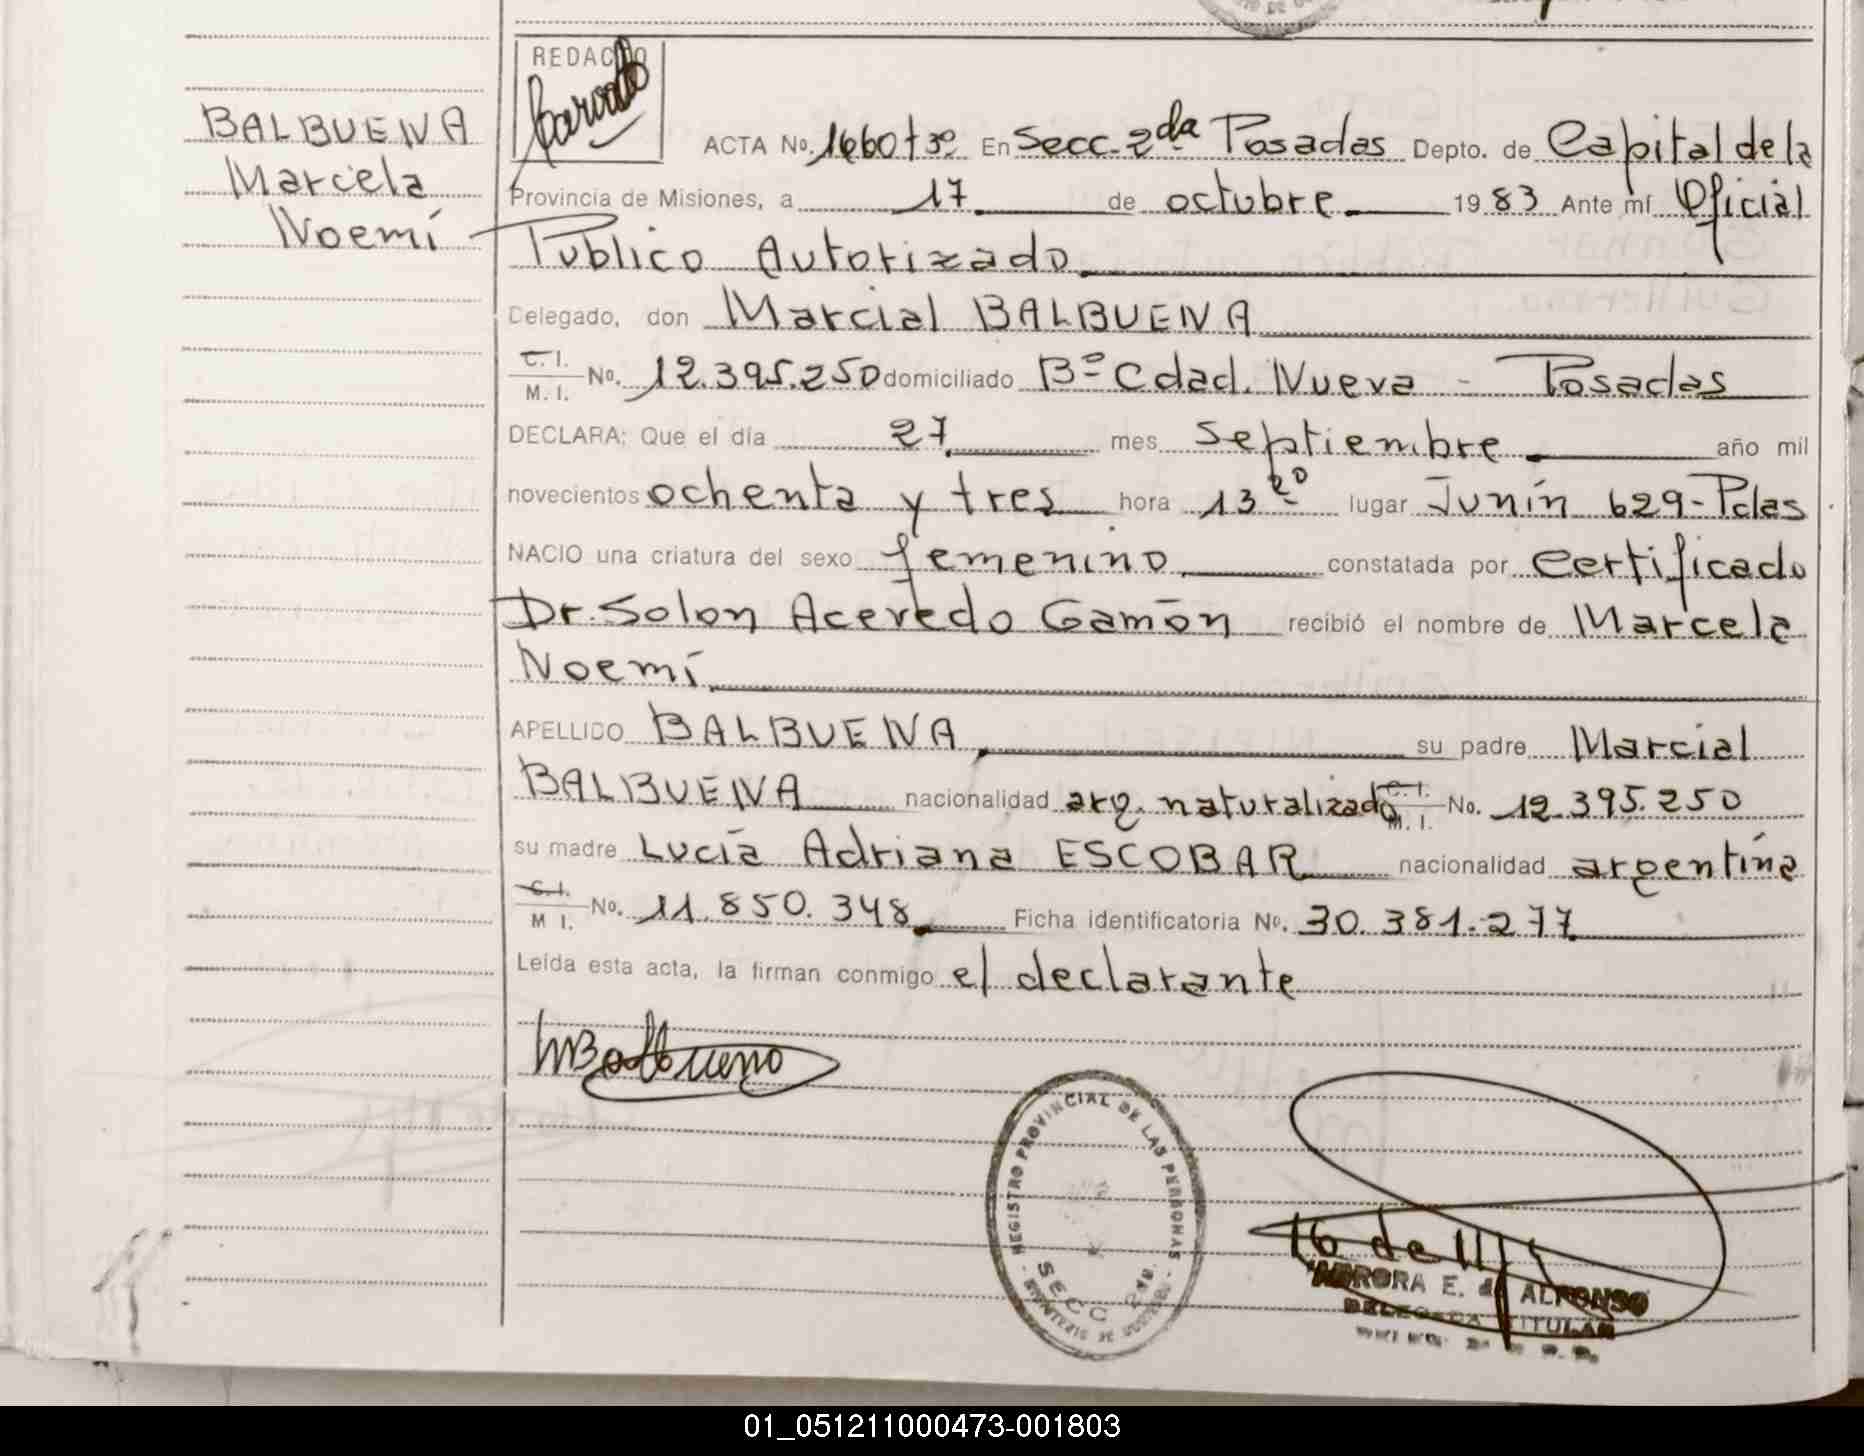 REDACTO
BALBUENA
Marcela
Noemí
ACTA No. 1660 tº 3º En Secc. 2da Posadas Depto. de Capital de la
Provincia de Misiones, a 17 de octubre 1983 Ante mí Oficial
Público Autorizado
Delegado, don Marcial BALBUENA
C. I.
M. I. No. 12.395.250 domiciliado Bº Cdad. Nueva - Posadas
DECLARA: Que el día 27 mes Septiembre año mil
novecientos ochenta y tres hora 13 20 lugar Junín 629-Pdas
NACIO una criatura del sexo femenino constatada por Certificado
Dr. Solon Acevedo Gamón recibió el nombre de Marcela
Noemí
APELLIDO BALBUENA su padre Marcial
BALBUENA nacionalidad arg. naturalizado C. I. M. I. No. 12.395.250
su madre Lucía Adriana ESCOBAR nacionalidad argentina
C. I.
M I. No. 11.850.348 Ficha identificatoria No. 30.381.277
Leída esta acta, la firman conmigo el declarante
MBalbuena
REGISTRO PROVINCIAL DE LAS PERSONAS
SECC 2da.
AURORA E. de ALFONSO
DELEGADA TITULAR
01_051211000473-001803